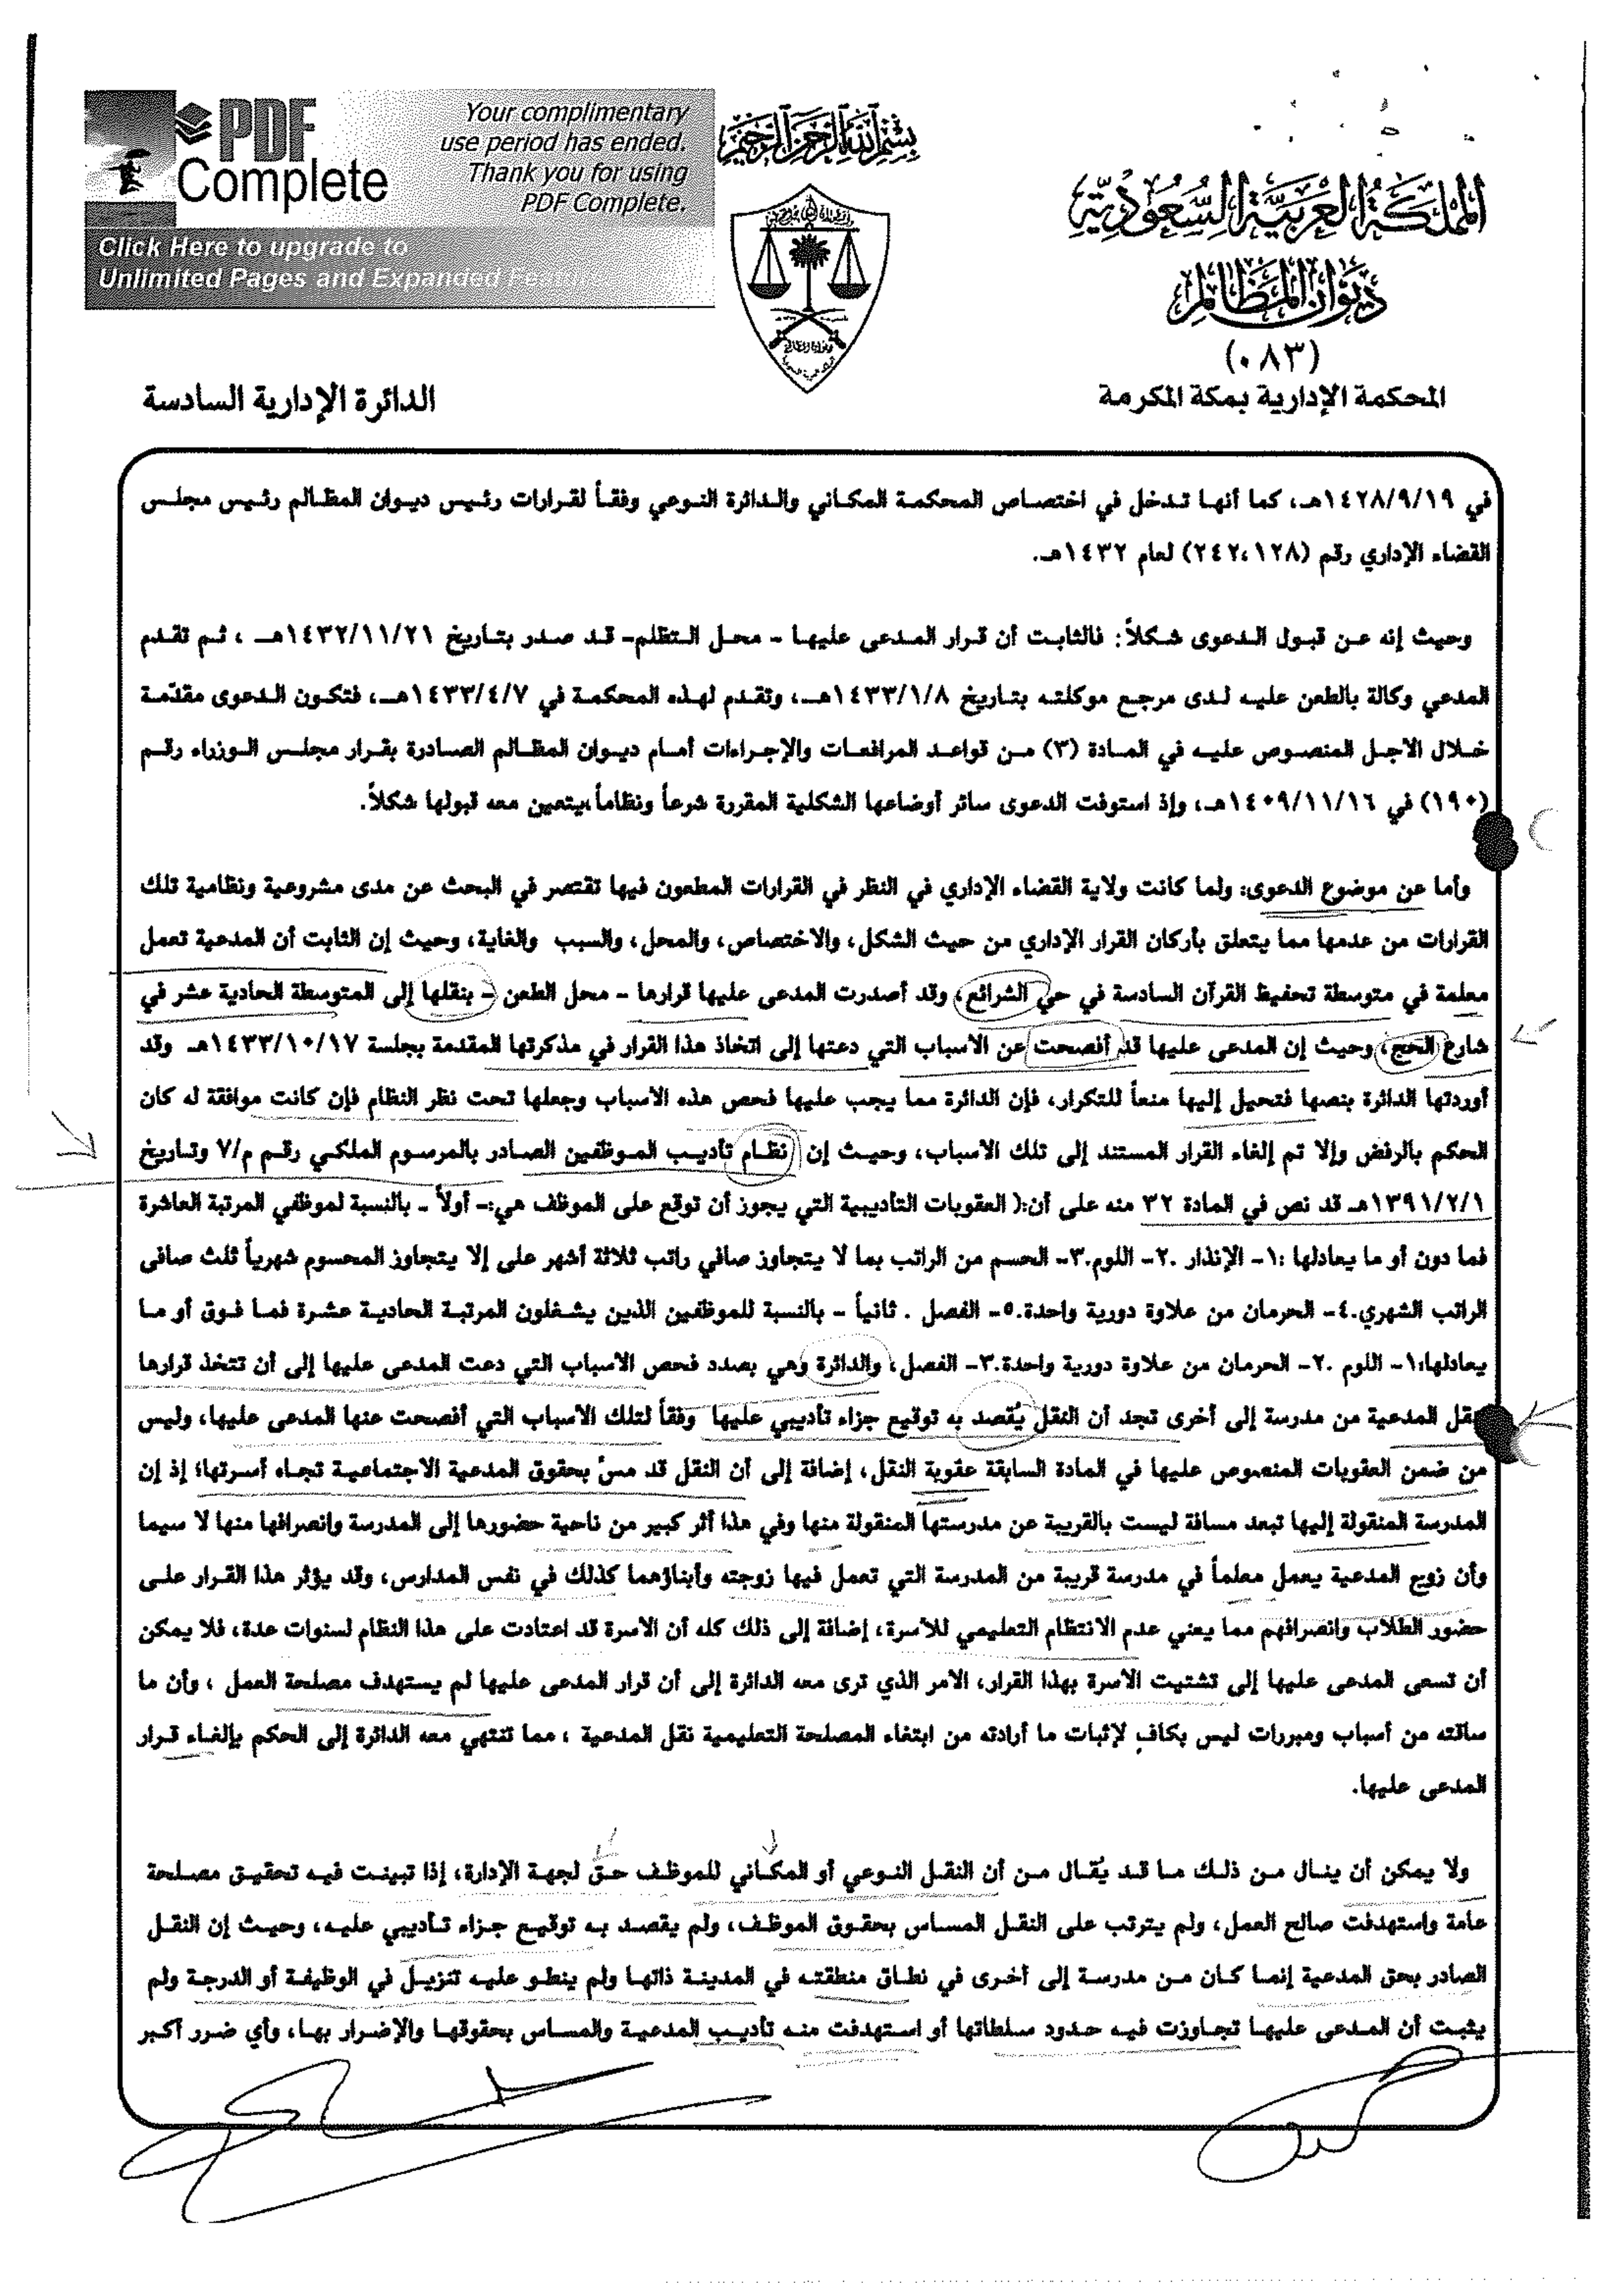 PDF
Complete
Your complimentary
use period has ended.
Thank you for using
PDF Complete.
Click Here to upgrade to
Unlimited Pages and Expanded Features
بسم الله الرحمن الرحيم
المملكة العربية السعودية
ديوان المظالم
(٠٨٣)
المحكمة الإدارية بمكة المكرمة
الدائرة الإدارية السادسة
في ١٤٢٨/٩/١٩هـ، كما أنها تدخل في اختصاص المحكمة المكاني والدائرة النوعي وفقاً لقرارات رئيس ديوان المظالم رئيس مجلس
القضاء الإداري رقم (٢٤٢،١٢٨) لعام ١٤٣٢هـ.
وحيث إنه عن قبول الدعوى شكلاً: فالثابت أن قرار المدعى عليها - محل التظلم- قد صدر بتاريخ ١٤٣٢/١١/٢١هـ ، ثم تقدم
المدعي وكالة بالطعن عليه لدى مرجع موكلته بتاريخ ١٤٣٣/١/٨هـ، وتقدم لهذه المحكمة في ١٤٣٣/٤/٧هـ، فتكون الدعوى مقدّمة
خلال الاجل المنصوص عليه في المادة (٣) من قواعد المرافعات والإجراءات أمام ديوان المظالم الصادرة بقرار مجلس الوزراء رقم
(١٩٠) في ١٤٠٩/١١/١٦هـ، وإذ استوفت الدعوى سائر أوضاعها الشكلية المقررة شرعاً ونظاماً،يتعين معه قبولها شكلاً.
وأما عن موضوع الدعوى: ولما كانت ولاية القضاء الإداري في النظر في القرارات المطعون فيها تقتصر في البحث عن مدى مشروعية ونظامية تلك
القرارات من عدمها مما يتعلق بأركان القرار الإداري من حيث الشكل، والاختصاص، والمحل، والسبب والغاية، وحيث إن الثابت أن المدعية تعمل
معلمة في متوسطة تحفيظ القرآن السادسة في حي الشرائع، وقد أصدرت المدعى عليها قرارها - محل الطعن - بنقلها إلى المتوسطة الحادية عشر في
شارع الحج، وحيث إن المدعى عليها قد أفصحت عن الأسباب التي دعتها إلى اتخاذ هذا القرار في مذكرتها المقدمة بجلسة ١٤٣٣/١٠/١٧هـ وقد
أوردتها الدائرة بنصها فتحيل إليها منعاً للتكرار، فإن الدائرة مما يجب عليها فحص هذه الأسباب وجعلها تحت نظر النظام فإن كانت موافقة له كان
الحكم بالرفض وإلا تم إلغاء القرار المستند إلى تلك الأسباب، وحيث إن نظام تأديب الموظفين الصادر بالمرسوم الملكي رقم م/٧ وتاريخ
١٣٩١/٢/١هـ قد نص في المادة ٣٢ منه على أن:( العقوبات التأديبية التي يجوز أن توقع على الموظف هي:- أولاً - بالنسبة لموظفي المرتبة العاشرة
فما دون أو ما يعادلها :١- الإنذار .٢- اللوم.٣- الحسم من الراتب بما لا يتجاوز صافي راتب ثلاثة أشهر على إلا يتجاوز المحسوم شهرياً ثلث صافي
الراتب الشهري.٤- الحرمان من علاوة دورية واحدة.٥- الفصل . ثانياً - بالنسبة للموظفين الذين يشغلون المرتبة الحادية عشرة فما فوق أو ما
يعادلها:١- اللوم .٢- الحرمان من علاوة دورية واحدة.٣- الفصل، والدائرة وهي بصدد فحص الأسباب التي دعت المدعى عليها إلى أن تتخذ قرارها
بنقل المدعية من مدرسة إلى أخرى تجد أن النقل يُقصد به توقيع جزاء تأديبي عليها وفقاً لتلك الأسباب التي أفصحت عنها المدعى عليها، وليس
من ضمن العقوبات المنصوص عليها في المادة السابقة عقوبة النقل، إضافة إلى أن النقل قد مسّ بحقوق المدعية الاجتماعية تجاه أسرتها؛ إذ إن
المدرسة المنقولة إليها تبعد مسافة ليست بالقريبة عن مدرستها المنقولة منها وفي هذا أثر كبير من ناحية حضورها إلى المدرسة وانصرافها منها لا سيما
وأن زوج المدعية يعمل معلماً في مدرسة قريبة من المدرسة التي تعمل فيها زوجته وأبناؤهما كذلك في نفس المدارس، وقد يؤثر هذا القرار على
حضور الطلاب وانصرافهم مما يعني عدم الانتظام التعليمي للأسرة، إضافة إلى ذلك كله أن الأسرة قد اعتادت على هذا النظام لسنوات عدة، فلا يمكن
أن تسعى المدعى عليها إلى تشتيت الأسرة بهذا القرار، الامر الذي ترى معه الدائرة إلى أن قرار المدعى عليها لم يستهدف مصلحة العمل ، وأن ما
ساقته من أسباب ومبررات ليس بكافٍ لإثبات ما أرادته من ابتغاء المصلحة التعليمية نقل المدعية ، مما تنتهي معه الدائرة إلى الحكم بإلغاء قرار
المدعى عليها.
ولا يمكن أن ينال من ذلك ما قد يُقال من أن النقل النوعي أو المكاني للموظف حق لجهة الإدارة، إذا تبينت فيه تحقيق مصلحة
عامة واستهدفت صالح العمل، ولم يترتب على النقل المساس بحقوق الموظف، ولم يقصد به توقيع جزاء تأديبي عليه، وحيث إن النقل
الصادر بحق المدعية إنما كان من مدرسة إلى أخرى في نطاق منطقته في المدينة ذاتها ولم ينطو عليه تنزيل في الوظيفة أو الدرجة ولم
يثبت أن المدعى عليها تجاوزت فيه حدود سلطاتها أو استهدفت منه تأديب المدعية والمساس بحقوقها والإضرار بها، وأي ضرر أكبر